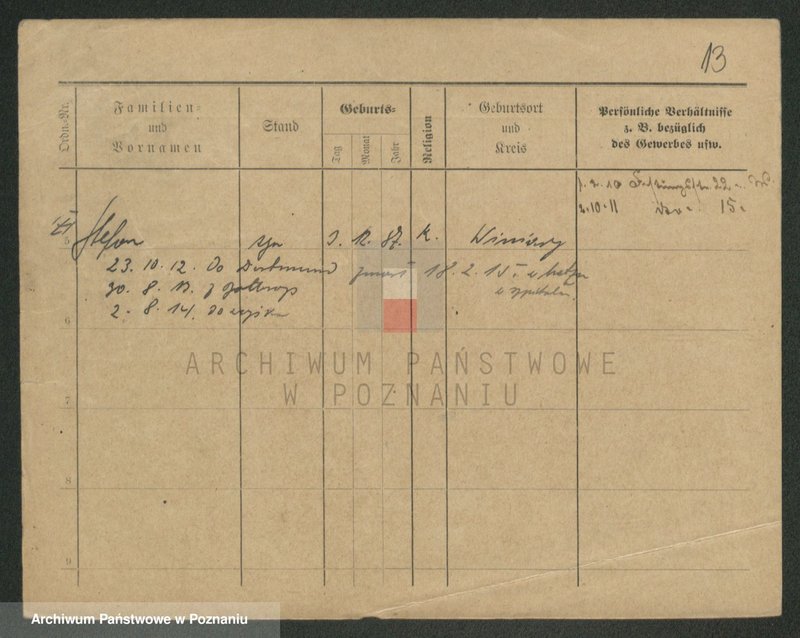 13
Ordn.-Nr.
Familien-
und
Vornamen
Stand
Geburts-
Tag
Monat
Jahr
Religion
Geburtsort
und
Kreis
Persönliche Verhältnisse
z. B. bezüglich
des Gewerbes usw.
22
2.10.11 15.
5 Stefan K. Winiary
23. 10. 12. Do Dortmund zmarł 18. 2. 15. w
30. 8. 13. z w szpitalu
2. 8. 14. Do wojska
6
ARCHIWUM PAŃSTWOWE
W POZNANIU
7
8
9
Archiwum Państwowe w Poznaniu